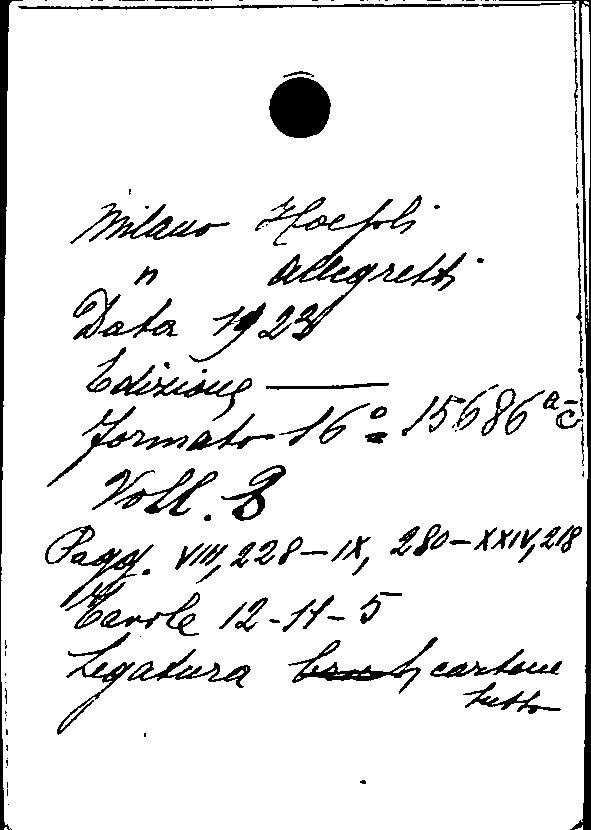 Milano Hoepli
" Allegretti
Data 1923
Edizione ———
formato 16° 15686 a-c
Voll. 3
Pagg. VIII, 228 — IX, 280 — XXIV, 218
Tavole 12 - 11 - 5
Legatura cartone
tutto